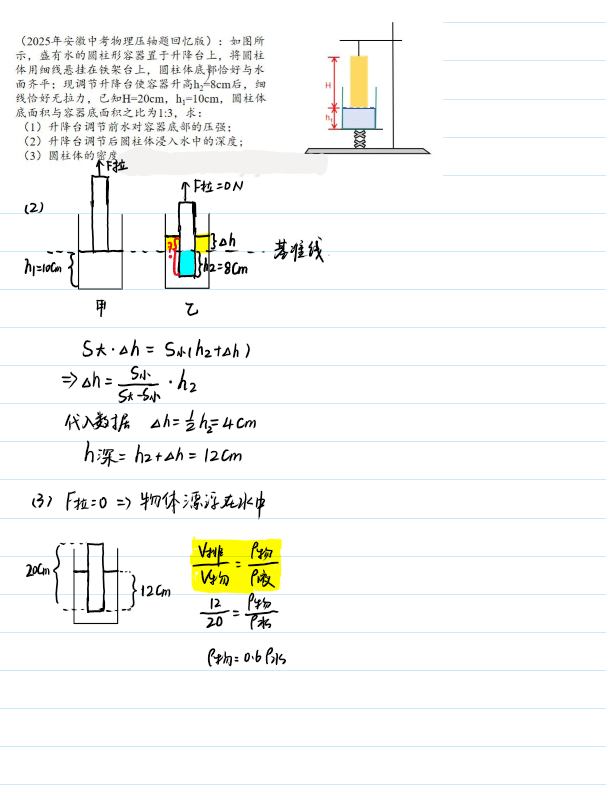 （2025年安徽中考物理压轴题回忆版）：如图所
示，盛有水的圆柱形容器置于升降台上，将圆柱
体用细线悬挂在铁架台上，圆柱体底部恰好与水
面齐平；现调节升降台使容器升高h₂=8cm后，细
线恰好无拉力，已知H=20cm，h₁=10cm，圆柱体
底面积与容器底面积之比为1:3，求：
（1）升降台调节前水对容器底部的压强；
（2）升降台调节后圆柱体浸入水中的深度；
（3）圆柱体的密度
H
h₁
F拉
(2)
F拉=0N
?
Δh
基准线
h1=10cm
h2=8cm
甲
乙
S大·Δh = S小(h2+Δh)
⇒ Δh = S小/(S大-S小) · h2
代入数据 Δh = 1/2 h2 = 4cm
h深 = h2+Δh = 12cm
(3) F拉=0 ⇒ 物体漂浮在水中
20cm
12cm
V排/V物 = ρ物/ρ液
12/20 = ρ物/ρ水
ρ物 = 0.6ρ水